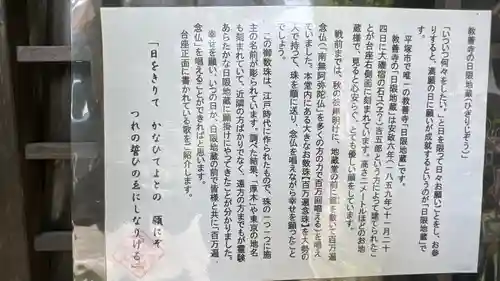 教善寺の日限地蔵(ひぎりじぞう)
「いついつ何々をしたい。」と日を限って日々お願いごとをし、お参
りすると、満願の日に願いが成就するというのが「日限地蔵」で
す。
平塚市で唯一の教善寺「日限地蔵」です。
教善寺の「日限地蔵」は安政六年(一八五九年)十一月二十
四日に大磯宿の石工
とが台座右側面に刻まれています。高さ二メートルほどのお地
蔵様で、見ると心安らぐ、とても優しい顔をしています。
戦前までは、秋の彼岸明けに、地蔵堂の前に筵を敷いて百万遍
念仏(「南無阿弥陀仏」を多くの方の力で百万回唱える)を唱え
ていました。本堂内にある大きなお数珠【百万遍念珠】を大勢の
人で持って、珠を順に送り、念仏を唱えながら幸せを願ったこと
でしょう。
この御数珠は、江戸時代に作られたもので、珠の一つ一つに施
主の名前が彫られています。調べた結果、「厚木」や東京の地名
も刻まれていて、近隣の方ばかりでなく、遠方の方までもが霊験
あらたかな日限地蔵に願掛けにやってきたことが分かりました。
幸せを願い、いつの日か、日限地蔵の前で皆様と共に「百万遍
念仏」を唱えることができればと思います。
台座正面に書かれている歌をご紹介します。
「日をきりて かなひてよとの 願にぞ
つれの誓ひの ゑにしなりける」